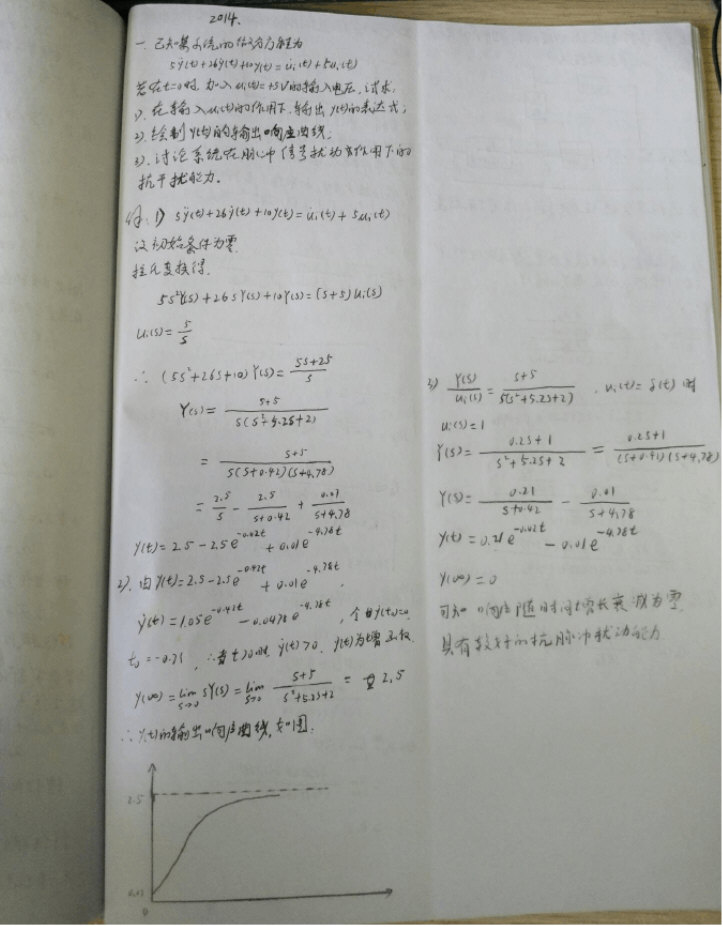 2014.
一. 已知某系统的微分方程为
5ÿ(t)+26ẏ(t)+10y(t)=u̇ᵢ(t)+5uᵢ(t)
若在t=0时,加入uᵢ(t)=+5V的输入电压,试求:
1). 在输入uᵢ(t)的作用下,输出y(t)的表达式;
2). 绘制y(t)的输出响应曲线;
3). 讨论系统在脉冲信号扰动作用下的
抗干扰能力.
解: 1) 5ÿ(t)+26ẏ(t)+10y(t)=u̇ᵢ(t)+5uᵢ(t)
设初始条件为零.
拉氏变换得.
5s²Y(s)+26sY(s)+10Y(s)=(s+5)Uᵢ(s)
Uᵢ(s)=5/s
∴ (5s²+26s+10)Y(s)=(5s+25)/s
Y(s)=(s+5)/(s(s²+5.2s+2))
=(s+5)/(s(s+0.42)(s+4.78))
=2.5/s - 2.5/(s+0.42) + 0.01/(s+4.78)
y(t)=2.5-2.5e^(-0.42t)+0.01e^(-4.78t)
2). 由y(t)=2.5-2.5e^(-0.42t)+0.01e^(-4.78t).
ẏ(t)=1.05e^(-0.42t)-0.0478e^(-4.78t), 令ẏ(t₀)=0
t₀=-0.71, ∴当t>0时 ẏ(t)>0, y(t)为增函数.
y(∞)=lim s→0 sY(s)=lim s→0 (s+5)/(s²+5.2s+2)=2.5
∴y(t)的输出响应曲线,如图.
2.5
0.01
0
3) Y(s)/Uᵢ(s)=(s+5)/(5(s²+5.2s+2)). uᵢ(t)=δ(t)时
Uᵢ(s)=1
Y(s)=(0.2s+1)/(s²+5.2s+2)=(0.2s+1)/((s+0.42)(s+4.78))
Y(s)=0.21/(s+0.42) - 0.01/(s+4.78)
y(t)=0.21e^(-0.42t)-0.01e^(-4.78t)
y(∞)=0
可知 响应随时间增长衰减为零
具有较好的抗脉冲扰动能力